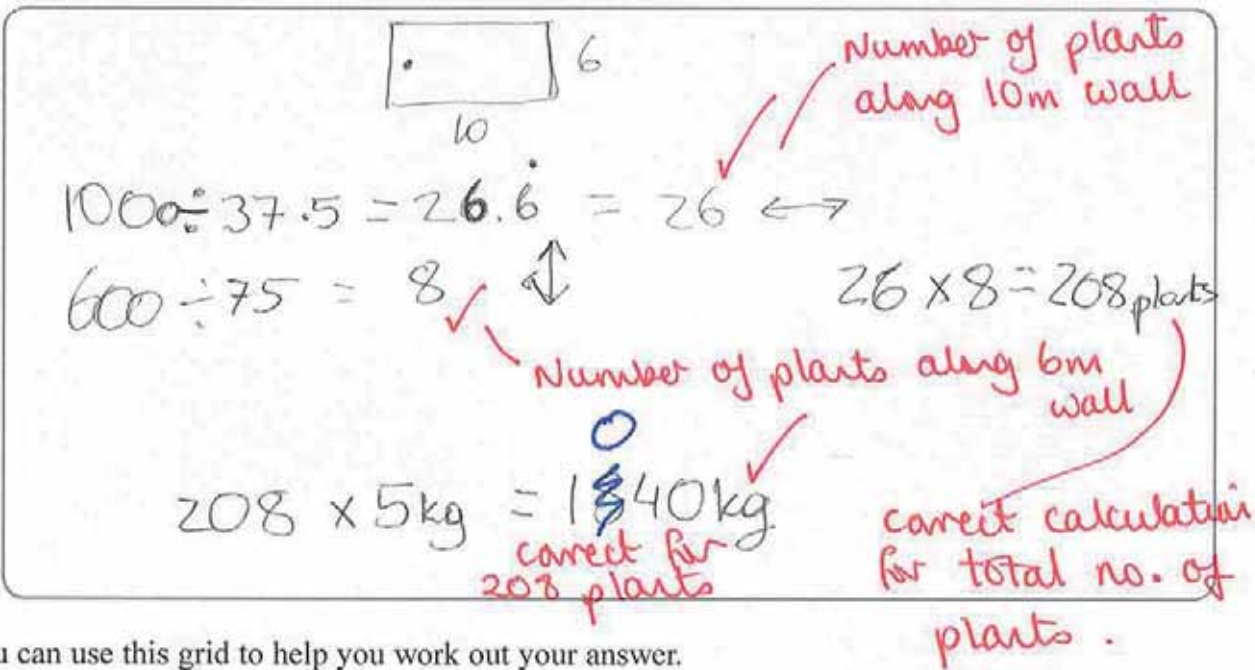 6
10
Number of plants
along 10m wall
1000÷37.5 = 26.6̇ = 26 ↔
600÷75 = 8 ↕
26 x 8 = 208 plants
Number of plants along 6m
wall
0
208 x 5kg = 1 40kg
correct for
208 plants
correct calculation
for total no. of
plants.
u can use this grid to help you work out your answer.